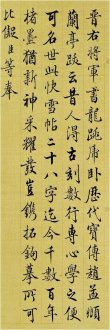 晉右將軍書龍跳虎卧歷代寶傳趙孟頫
蘭亭跋云昔人得古刻數行專心學之便
可名世此快雪帖二十八字迄今千數百年
楮墨猶新神采耀發豈鐫拓鉤摹所可
比擬臣等奉